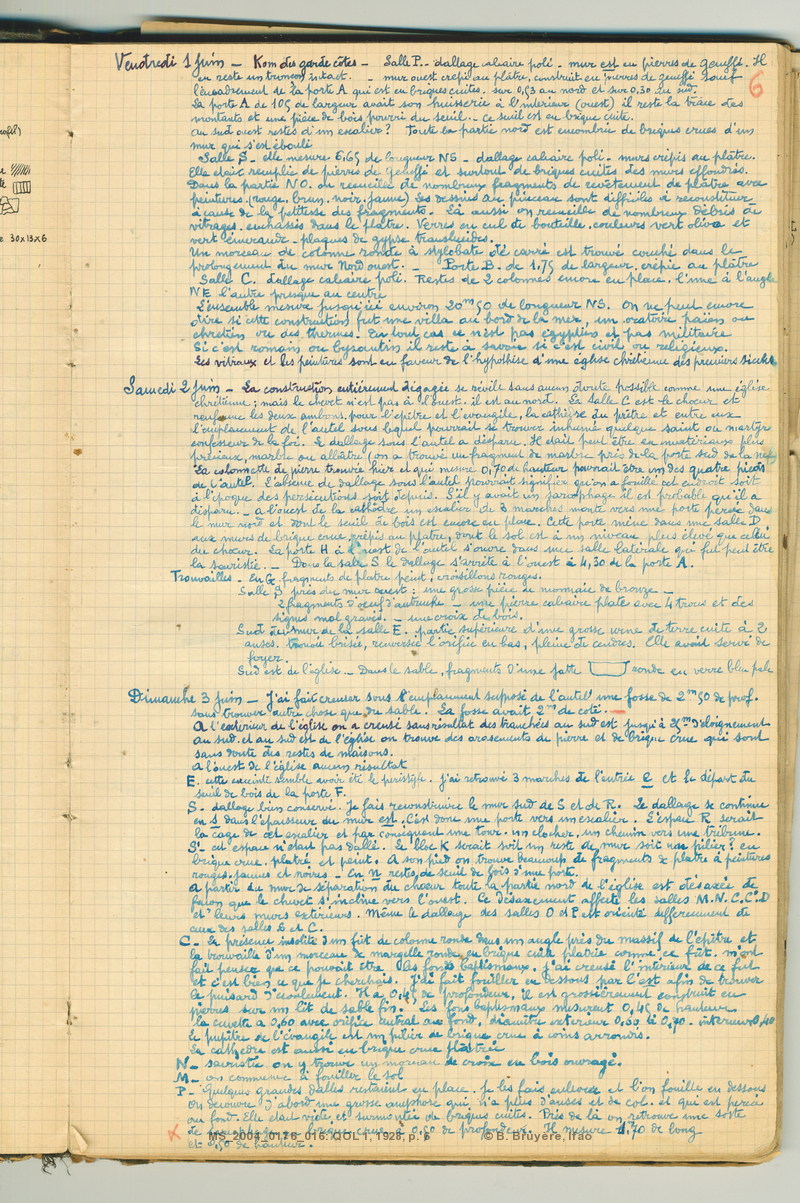 6
Vendredi 1 juin – Kom des garde côtes – Salle P. – dallage calcaire poli. mur est en pierres de geneffé. Il
en reste un tronçon intact. – mur ouest crépi au plâtre, construit en pierres de geneffé sauf
l'encadrement de la porte A qui est en briques cuites. sur 0,53 au nord et sur 0,30 au sud.
La porte A de 105 de largeur avait son huisserie à l'intérieur (ouest) il reste la trace des
montants et une pièce de bois pourri du seuil. – Ce seuil est en brique cuite.
au sud ouest restes d'un escalier? Toute la partie nord est encombrée de briques crues d'un
mur qui s'est éboulé
Salle S – elle mesure 5,65 de longueur NS – dallage calcaire poli – murs crépis au plâtre.
Elle était remplie de pierres de Geneffé et surtout de briques cuites des murs effondrés.
Dans la partie NO. on recueille de nombreux fragments de revêtement de plâtre avec
peintures (rouge, brun, noir, jaune) Les dessins au pinceau sont difficiles à reconstituer
à cause de la petitesse des fragments. Là aussi on recueille de nombreux débris de
vitrages enchassés dans le plâtre. Verres en cul de bouteille, couleurs vert olive et
vert émeraude – plaques de gypse translucides.
Un morceau de colonne ronde à stylobate dé carré est trouvé couché dans le
prolongement du mur Nord ouest. – Porte B. de 1,75 de largeur, crépie au plâtre
Salle C. dallage calcaire poli. Restes de 2 colonnes encore en place. l'une à l'angle
NE l'autre presque au centre
L'ensemble mesure jusqu'ici environ 20m50 de longueur NS. On ne peut encore
dire si cette construction fut une villa au bord de la mer, un oratoire païen ou
chrétien ou des thermes. En tout cas ce n'est pas égyptien et pas militaire
Si c'est romain ou byzantin il reste à savoir si c'est civil ou religieux.
Les vitraux et les peintures sont en faveur de l'hypothèse d'une église chrétienne des premiers siècles
Samedi 2 juin – La construction entièrement dégagée se révèle sans aucun doute possible comme une église
chrétienne; mais le chevet n'est pas à l'ouest. il est au nord. La salle C est le chœur et
renferme les deux ambons, pour l'épître et l'évangile, la cathèdre du prêtre et entre eux
l'emplacement de l'autel sous lequel pourrait se trouver inhumé quelque saint ou martyr
confesseur de la foi. Le dallage sous l'autel a disparu. Il était peut être en matériaux plus
précieux, marbre ou albâtre (on a trouvé un fragment de marbre près de la porte sud de la nef)
La colonnette de pierre trouvée hier et qui mesure 0,70 de hauteur pourrait être un des quatre pieds
de l'autel. L'absence de dallage sous l'autel pourrait signifier qu'on a fouillé cet endroit soit
à l'époque des persécutions soit depuis. S'il y avait un sarcophage il est probable qu'il a
disparu. – a l'ouest de la cathèdre un escalier de 3 marches monte vers une porte percée dans
le mur nord et dont le seuil de bois est encore en place. Cette porte mène dans une salle D
aux murs de brique crue, crépis au platre, dont le sol est à un niveau plus élevé que celui
du chœur. La porte H à l'ouest de l'autel s'ouvre dans une salle latérale qui fut peut être
la sacristie. – Dans la salle S le dallage s'arrête à l'ouest à 4,30 de la porte A.
Trouvailles. – En C. fragments de platre peint, croisillons rouges.
Salle S près du mur ouest : une grosse pièce de monnaie de bronze –
2 fragments d'oeuf d'autruche – une pierre calcaire plate avec 4 trous et des
signes mal gravés. – une croix de bois.
Sud du mur de la salle E. partie supérieure d'une grosse urne de terre cuite à 2
anses. trouvée brisée, renversée l'orifice en bas, pleine de cendres. Elle avait servi de
foyer.
Sud est de l'église. – Dans le sable, fragments d'une jatte ronde en verre bleu pale
Dimanche 3 juin – J'ai fait creuser sous l'emplacement supposé de l'autel une fosse de 2m50 de prof.
sans trouver autre chose que du sable. La fosse avait 2m de coté. –
A l'extérieur de l'église on a creusé sans résultat des tranchées au sud est jusqu'à 25m d'éloignement
au sud et au sud est de l'église on trouve des arasements de pierre et de brique crue qui sont
sans doute des restes de maisons.
a l'ouest de l'église aucun résultat
E. cette enceinte semble avoir été le péristyle. J'ai retrouvé 3 marches de l'entrée e et le départ du
seuil de bois de la porte F.
S – dallage bien conservé. Je fais reconstruire le mur sud de S et de R. Le dallage se continue
en s dans l'épaisseur du mur est. C'est donc une porte vers un escalier. L'espace R serait
la cage de cet escalier et par conséquent une tour. un clocher, un chemin vers une tribune.
S' – cet espace n'était pas dallé. Le bloc K serait soit un reste de mur soit un pilier? en
brique crue, platré et peint. A son pied on trouve beaucoup de fragments de platre à peintures
rouges, jaunes et noires – En n restes de seuil de bois d'une porte.
A partir du mur de séparation du chœur toute la partie nord de l'église est désaxée de
façon que le chevet s'incline vers l'ouest. Ce désaxement affecte les salles M.N.C.C'.D
et leurs murs extérieurs. Même le dallage des salles O et P est orienté différemment de
ceux des salles D et C.
C – La présence insolite d'un fût de colonne ronde dans un angle près du massif de l'épître et
la trouvaille d'un morceau de margelle ronde en brique cuite platrée comme ce fût, m'ont
fait penser que ce pouvait être les fonds baptismaux. J'ai creusé l'intérieur de ce fût
et c'est bien ce que je cherchais. J'ai fait fouiller en dessous par l'est afin de trouver
le puisard d'écoulement. Il a 0,45 de profondeur, il est grossièrement construit en
pierres sur un lit de sable fin. Les fons baptismaux mesurent 0,45 de hauteur
la cuvette a 0,60 avec orifice central au fond, diamètre extérieur 0,60 à 0,70 – intérieur 0,40
Le pupitre de l'évangile est un pilier de brique crue à coins arrondis.
La cathèdre est aussi en brique crue platrée
N – sacristie on y trouve un morceau de croix en bois ouvragé.
M – on commence à fouiller le sol
P – Quelques grandes dalles restaient en place. Je les fais enlever et l'on fouille en dessous
On découvre d'abord une grosse amphore qui n'a plus d'anses et de col. et qui est percée
au fond. Elle était vide, et surmontée de briques cuites. Près de là on retrouve une sorte
de sarcophage en brique crue à 0,50 de profondeur. Il mesure 1.70 de long
et 0,50 de hauteur.
MS_2004_0176_016. QOL 1, 1928, p. 6 © B. Bruyère, Ifao
30x13x6